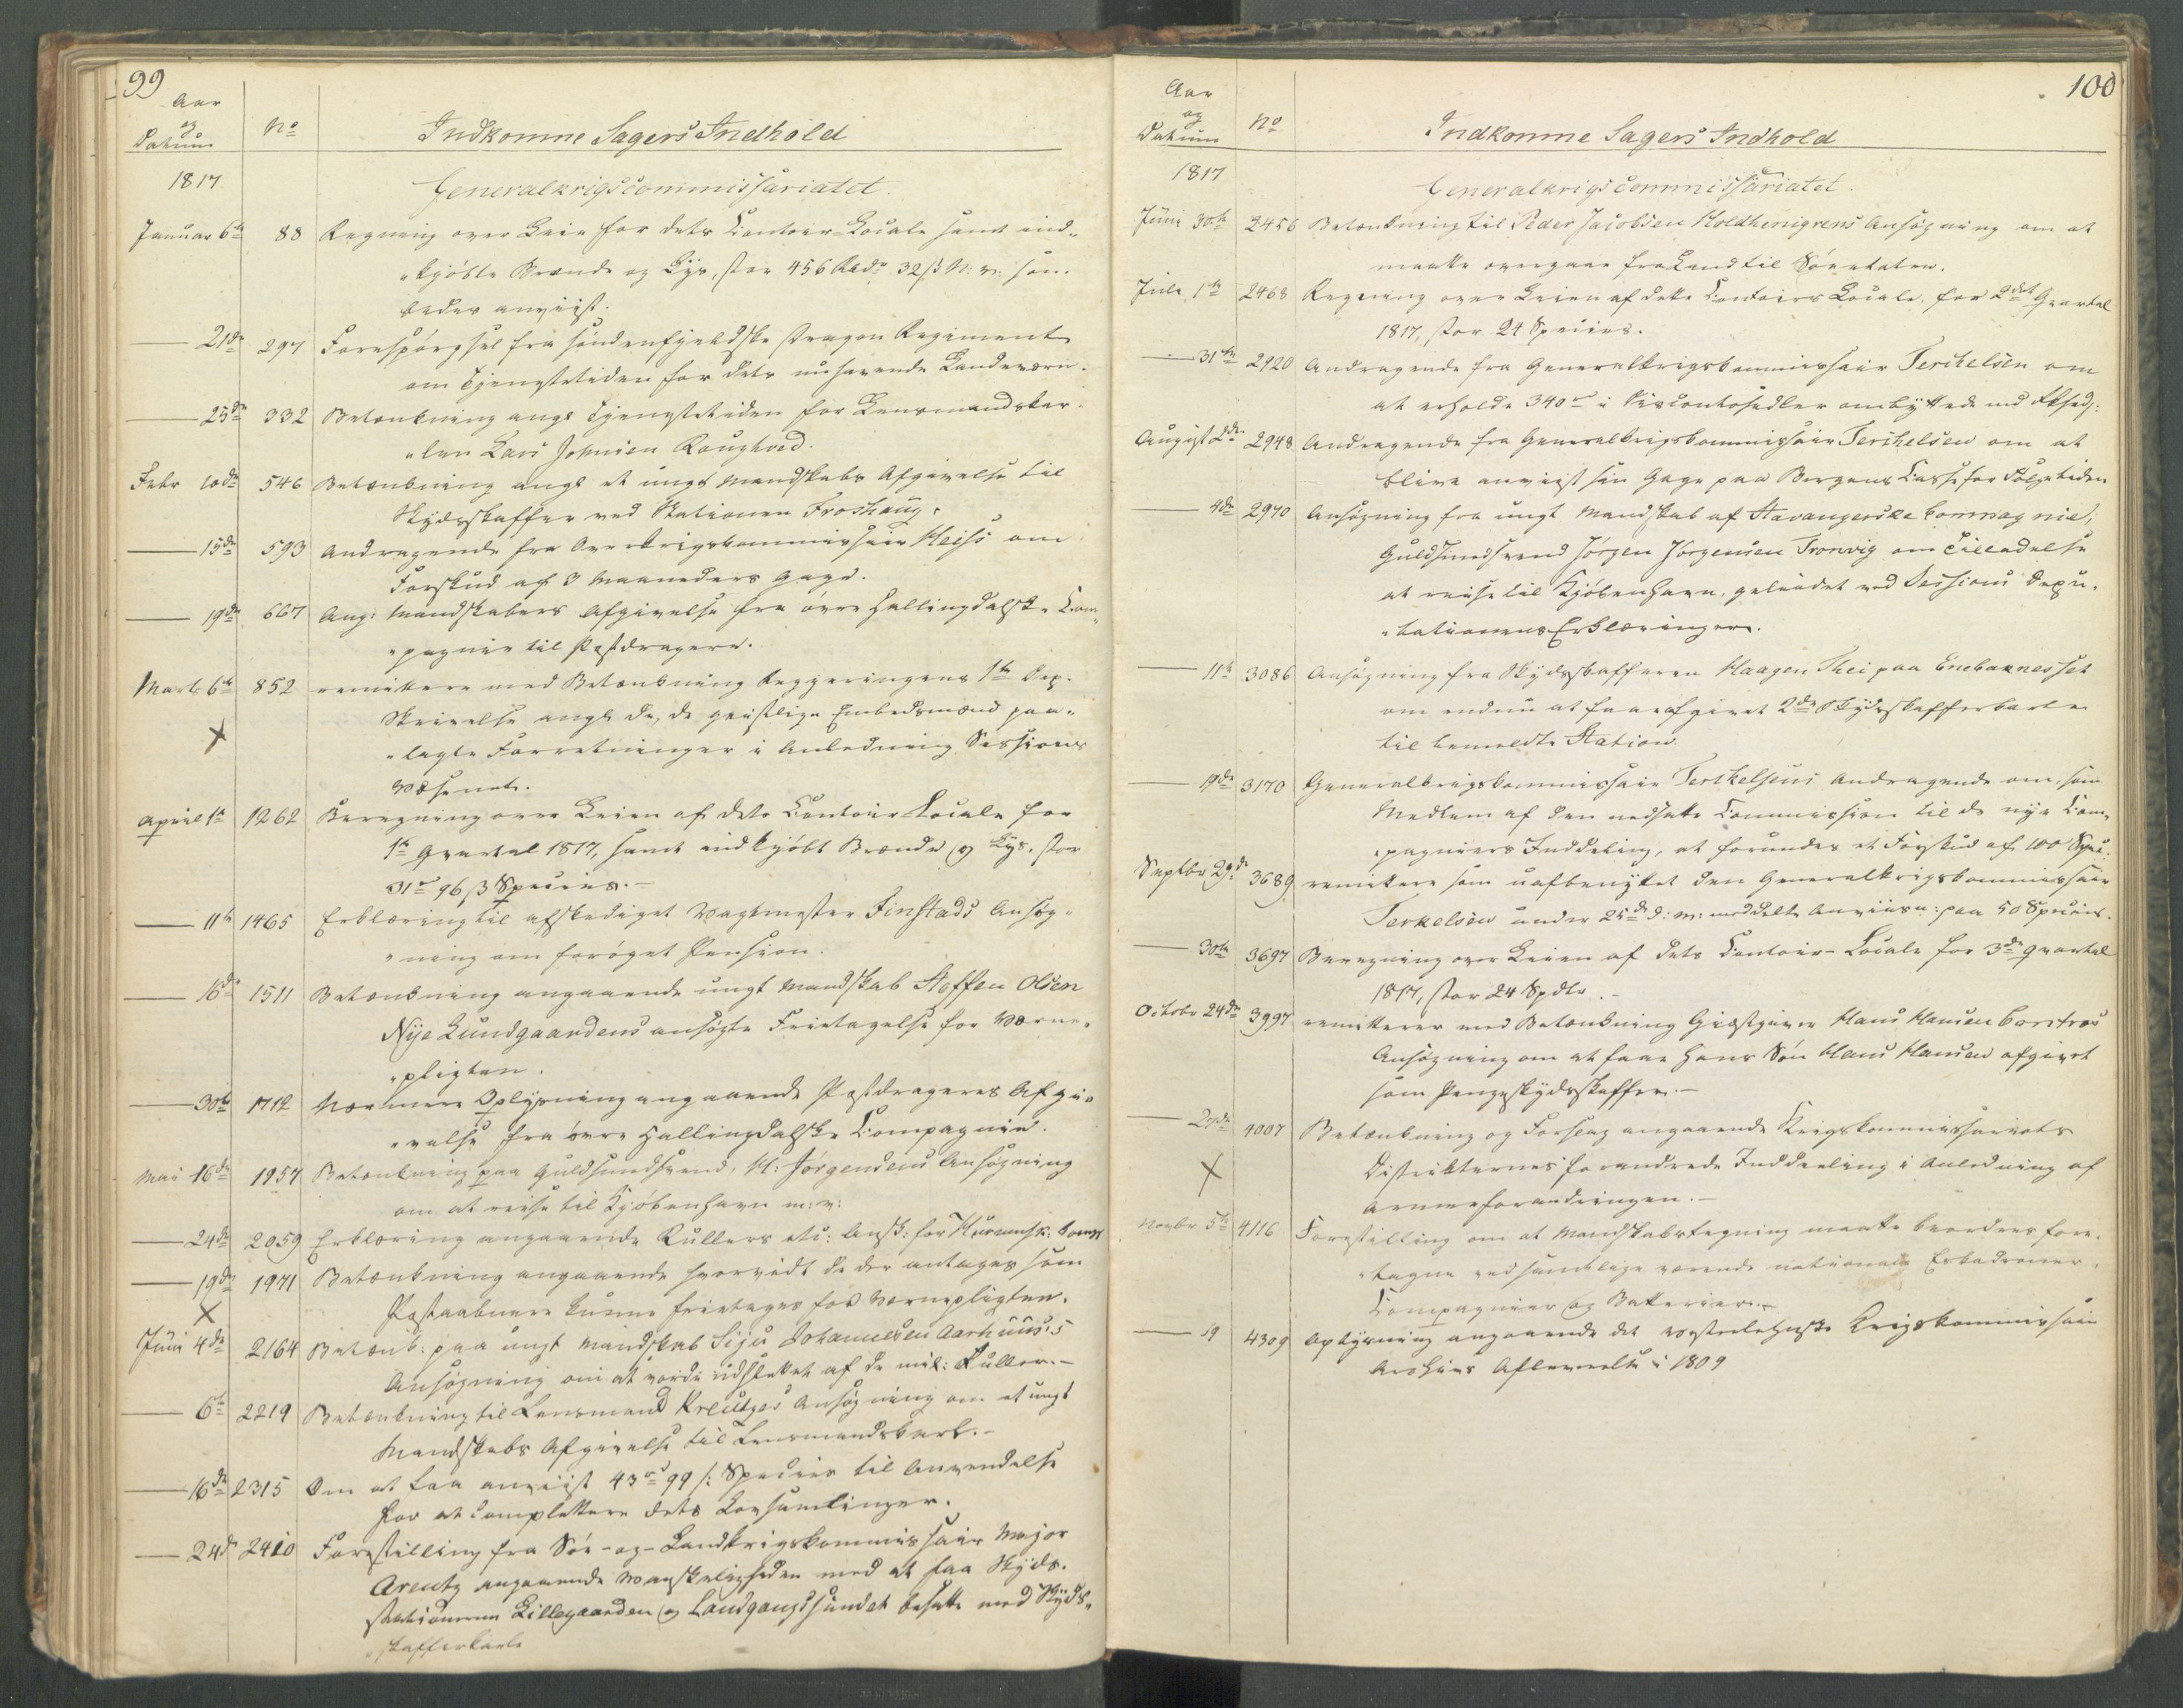 99
Aar
og
Datum
No
Indkomne Sagers Indhold
1817
Generalkrigscommissariatet.
Januar 6te 88 Regning over Leie for dets Contoir-Locale samt ind-
"kjøbte Brænde og Lys, stor 456 Rbdr 32 ß N: v: som
bedes anviist.
— 21de 297 Forespørgsel fra søndenfjeldske Dragon Regiment
om Tjenestetiden for dets nuhavende Landeværn.
— 25de 332 Betænkning angl Tjenestetiden for Lensmandskar-
"len Lars Johnsen
Febr 10de 546 Betænkning angl et ungt Mandskabs Afgivelse til
Skydsskaffer ved Stationen Froshaug.
— 15de 593 Andragende fra Overkrigskommissair Heiss om
Forskud af 3 Maaneders Gage.
— 19de 667 Ang: Mandskabers Afgivelse fra øvre Hallingdalske Com-
"pagnie til Postdragere.
Marts 6te 852 remittere med Betænkning Regjeringens 1te Dep.
Skrivelse angl de, de geistlige Embedsmænd paa-
"lagte Forretninger i Anledning Sessions
Væsenet.
April 1te 1262 Beregning over Leien af dets Contoir-Locale for
1te Qvartal 1817, samt indkjøbt Brænde og Lys, stor
31 96 ß Species.-
— 11te 1465 Erklæring til afskediget Vagtmester Finstads Ansøg-
"ning om forøget Pension.
— 16de 1511 Betænkning angaaende ungt Mandskab Steffen Olsen
Nye Lundgaardens ansøgte Fritagelse for Værne-
"pligten.
— 30te 1712 Nærmere Oplysning angaaende Postdrageres Afgi-
"velse fra øvre Hallingdalske Compagnie.
Mai 16de 1957 Betænkning paa Guldsmedsvend, H: Jørgensens Ansøgning
om at reise til Kjøbenhavn m: v:
— 24de 2059 Erklæring angaaende Rullers etc:
— 19de 1971 Betænkning angaaende hvorvidt de der antages som
Postaabnere kunne fritages for Værnepligten.
Juni 4de 2164 Betænk: paa ungt Mandskab Johannesen Aarhuus's
Ansøgning om at vorde udslettet af de mil: Ruller.-
— 6te 2219 Betænkning til Lensmand Kreutzes Ansøgning om et ungt
Mandskabs Afgivelse til Lensmandskarl.-
— 16de 2315 Om at faa anviist 43 99 ß: Species til Anvendelse
for at complettere dets Lovsamlinger.
— 24de 2410 Forestilling fra Søe-og-Landkrigskommissair Major
Arentz angaaende Vanskeligheden med at faa Skyds-
stationerne Lillegaarden og Landgangssundet besatte med Skyds-
"skafferkarle
100
Aar
og
Datum
No
Indkomne Sagers Indhold
1817
Generalkrigscommissariatet.
Juni 30te 2456 Betænkning til Peder Jacobsen Ansøgning om at
maatte overgaae fra Land til Søeetaten.
Juli 1te 2468 Regning over Leien af dette Contoirs Locale for 2det Qvartal
1817, stor 24 Species.
— 31te 2920 Andragende fra Generalkrigskommissair Terchelsen om
at erholde 340 i Discontosedler ombyttede
August 2den 2948 Andragende fra Generalkrigskommissair Terchelsen om at
blive anviist sin Gage paa Bergens Casse for
— 4de 2970 Ansøgning fra ungt Mandskab af Stavangerske Compagnie,
Guldsmedsvend Jørgen Jørgensen Tronvig om Tilladelse
at reise til Kjøbenhavn, geleidet ved Sessions Depu-
"tationens Erklæringer.
— 11te 3086 Ansøgning fra Skydsskafferen Haagen Thei paa
om endnu at faae afgivet 2de Skydsskafferkarle
til bemeldte Station
— 19de 3170 Generalkrigskommissair Terchelsens Andragende om, som
Medlem af den nedsatte Commission til de nye Com-
"pagniers Inddeling, at forundes et Forskud af 100 Spec:
Septbr 29de 3689 remittere som uafbenyttet den Generalkrigskommissair
Terkelsen under 25de d: m: meddelte Anviisn: paa 50 Species.
— 30te 3697 Beregning over Leien af dets Contoir-Locale for 3die Qvartal
1817, stor 24 Spdlr.-
Octobr 24de 3997 remitterer med Betænkning Giestgiver Hans Hansen
Ansøgning om at faae hans Søn Hans Hansen afgivet
som Skydsskaffer.-
— 27de 4007 Betænkning og Forslag angaaende Krigskommissariats
Distrikternes forandrede Inddeeling i Anledning af
Armeeforandringen.-
Novbr 5te 4116 Forestilling om at Mandskabstegning maatte beordres fore-
"tagne ved samtlige værende nationale Eskadroner,
Compagnier og Batterier.-
— 19 4309 Oplysning angaaende det vesterlehnske Krigskommissair
Archivs Afleverelse i 1809